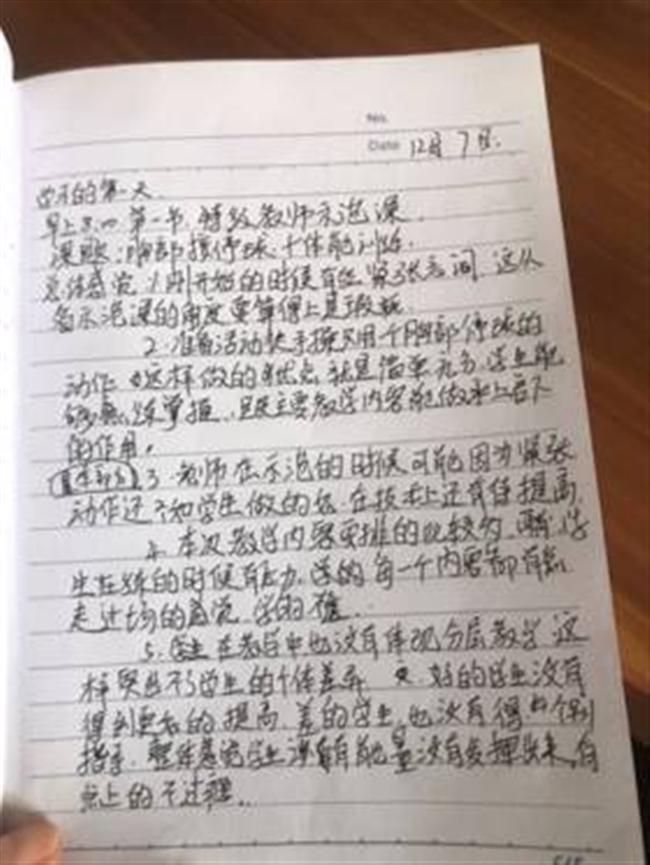 No.
Date 12月 7日.
的第一天
早上 第一节,特级教师示范课.
课题:胸部接停球 + 体能训练.
总体感觉 1.刚开始的时候有些紧张 这从
看示范课的角度 算得上是瑕疵
2. 准备活动 采用一个胸部停球的
动作 这样做的优点就是简单 学生能
够 练掌握, 且主要教学内容能做承上启下
的作用,
3. 老师在示范的时候可能因为紧张
动作还不如学生做的好 在技术上还有待提高
4. 本次教学内容安排的比较多, 学
生在练的时候有压力 学的每一个内容都有点
走过场的感觉 学的
5. 在教学中也没有体现分层教学 这
样 不 学生的个体差异 好的学生没有
得到更高的提高, 差的学生,也没有得 个别
指导. 整体感觉学生 有能量没有发挥出来,有
点上的不过瘾..